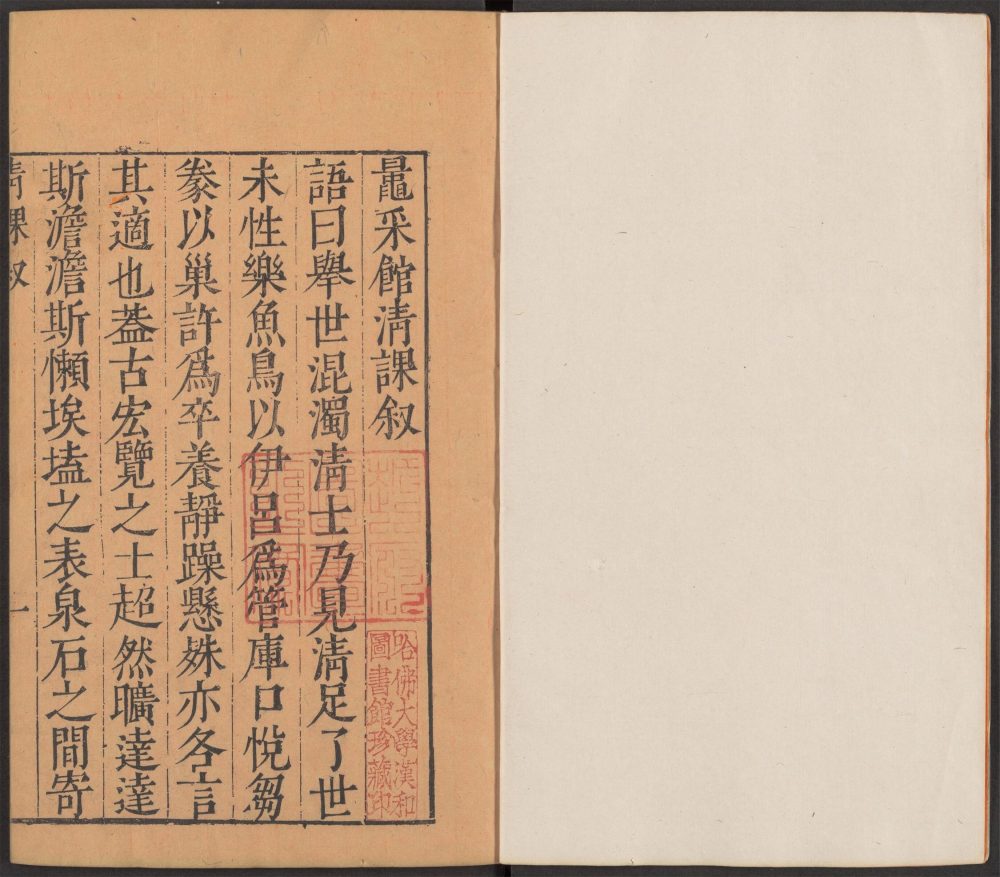 鼂采館清課叙
語曰舉世混濁清士乃見清足了世
未性樂魚鳥以伊呂爲管庫口悅芻
豢以巢許爲卒養靜躁懸殊亦各言
其適也葢古宏覽之士超然曠達達
斯澹澹斯懶埃壒之表泉石之間寄
清課叙
一
哈佛大學漢和
圖書館珍藏印